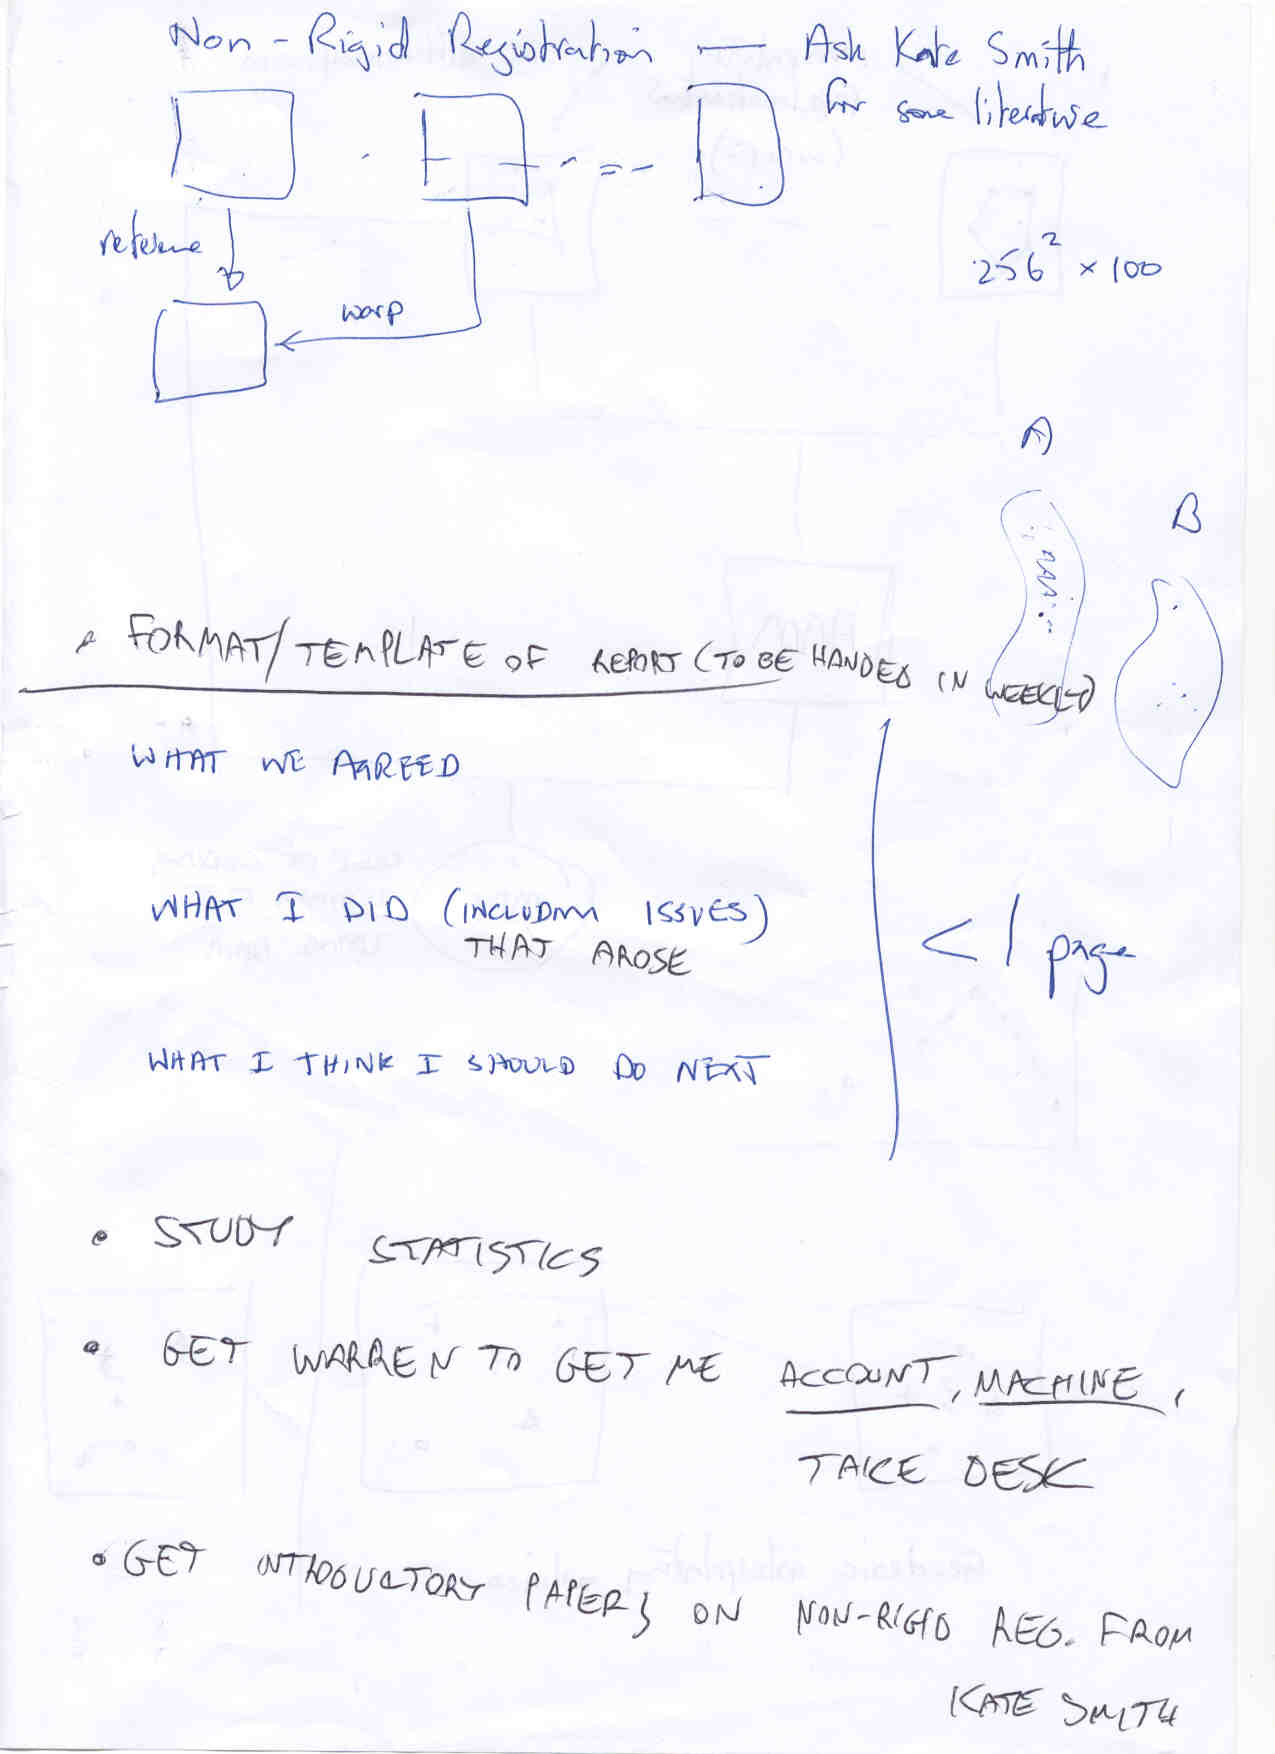 Non-Rigid Registration — Ask Kate Smith
for some literature
reference
warp
256² × 100
A
B
• FORMAT/TEMPLATE OF REPORT (TO BE HANDED IN WEEKLY)
WHAT WE AGREED
WHAT I DID (INCLUDING ISSUES)
THAT AROSE
< 1 page
WHAT I THINK I SHOULD DO NEXT
• STUDY STATISTICS
• GET WARREN TO GET ME ACCOUNT, MACHINE,
TAKE DESK
• GET INTRODUCTORY PAPERS ON NON-RIGID REG. FROM
KATE SMITH